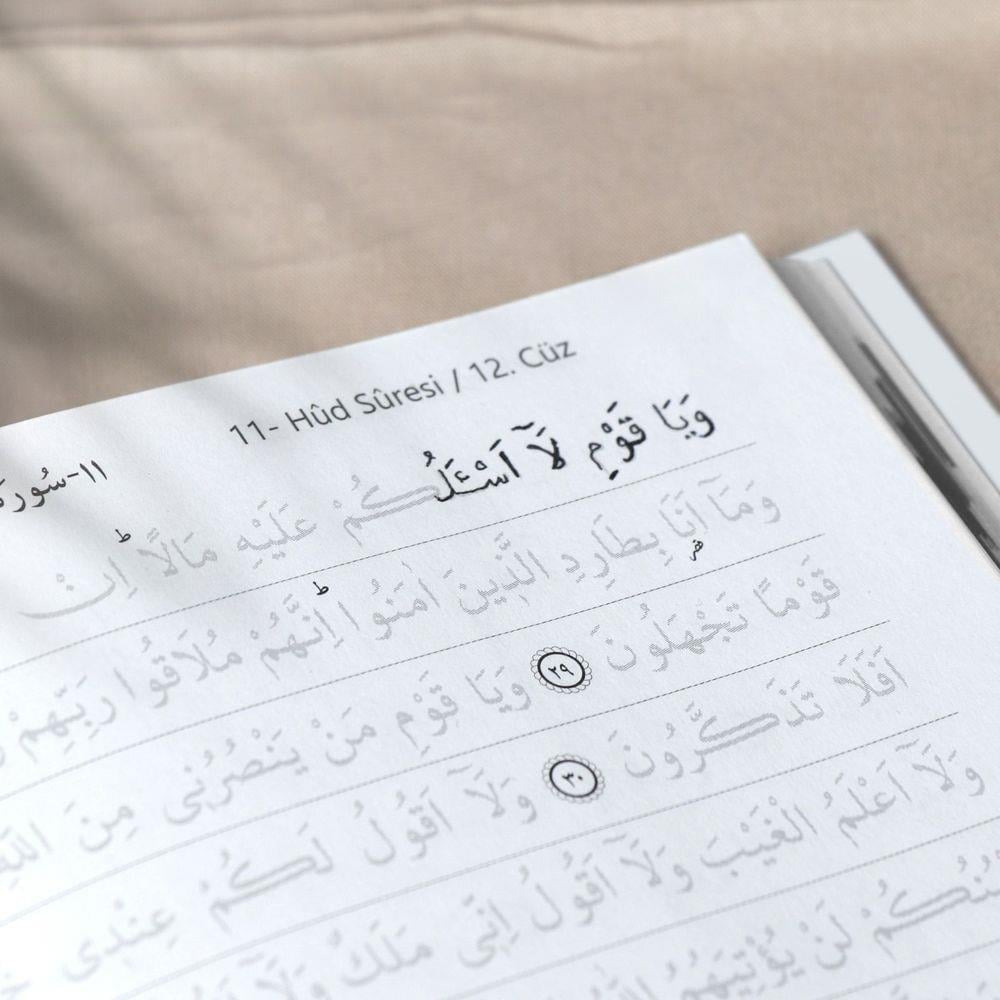 11- Hûd Sûresi / 12. Cüz
١١-سُورَة
وَيَا قَوْمِ لَآ اَسْـَٔلُكُمْ عَلَيْهِ مَالًا ۜ اِنْ
وَمَآ اَنَا۬ بِطَارِدِ الَّذ۪ينَ اٰمَنُوا ۜ اِنَّهُمْ مُلَاقُوا رَبِّهِمْ
قَوْمًا تَجْهَلُونَ ﴿٢٩﴾ وَيَا قَوْمِ مَنْ يَنْصُرُن۪ى مِنَ اللّٰهِ
اَفَلَا تَذَكَّرُونَ ﴿٣٠﴾ وَلَآ اَقُولُ لَكُمْ عِنْد۪ى
وَلَآ اَعْلَمُ الْغَيْبَ وَلَآ اَقُولُ اِنّ۪ى مَلَكٌ وَلَآ
لَنْ يُؤْتِيَهُمُ